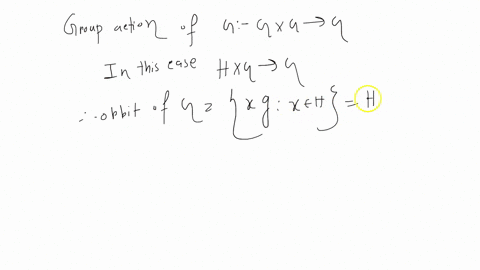 Group action of G :- G × G → G
In this case H × G → G
∴ obbit of G = { xg : x ∈ H } = H